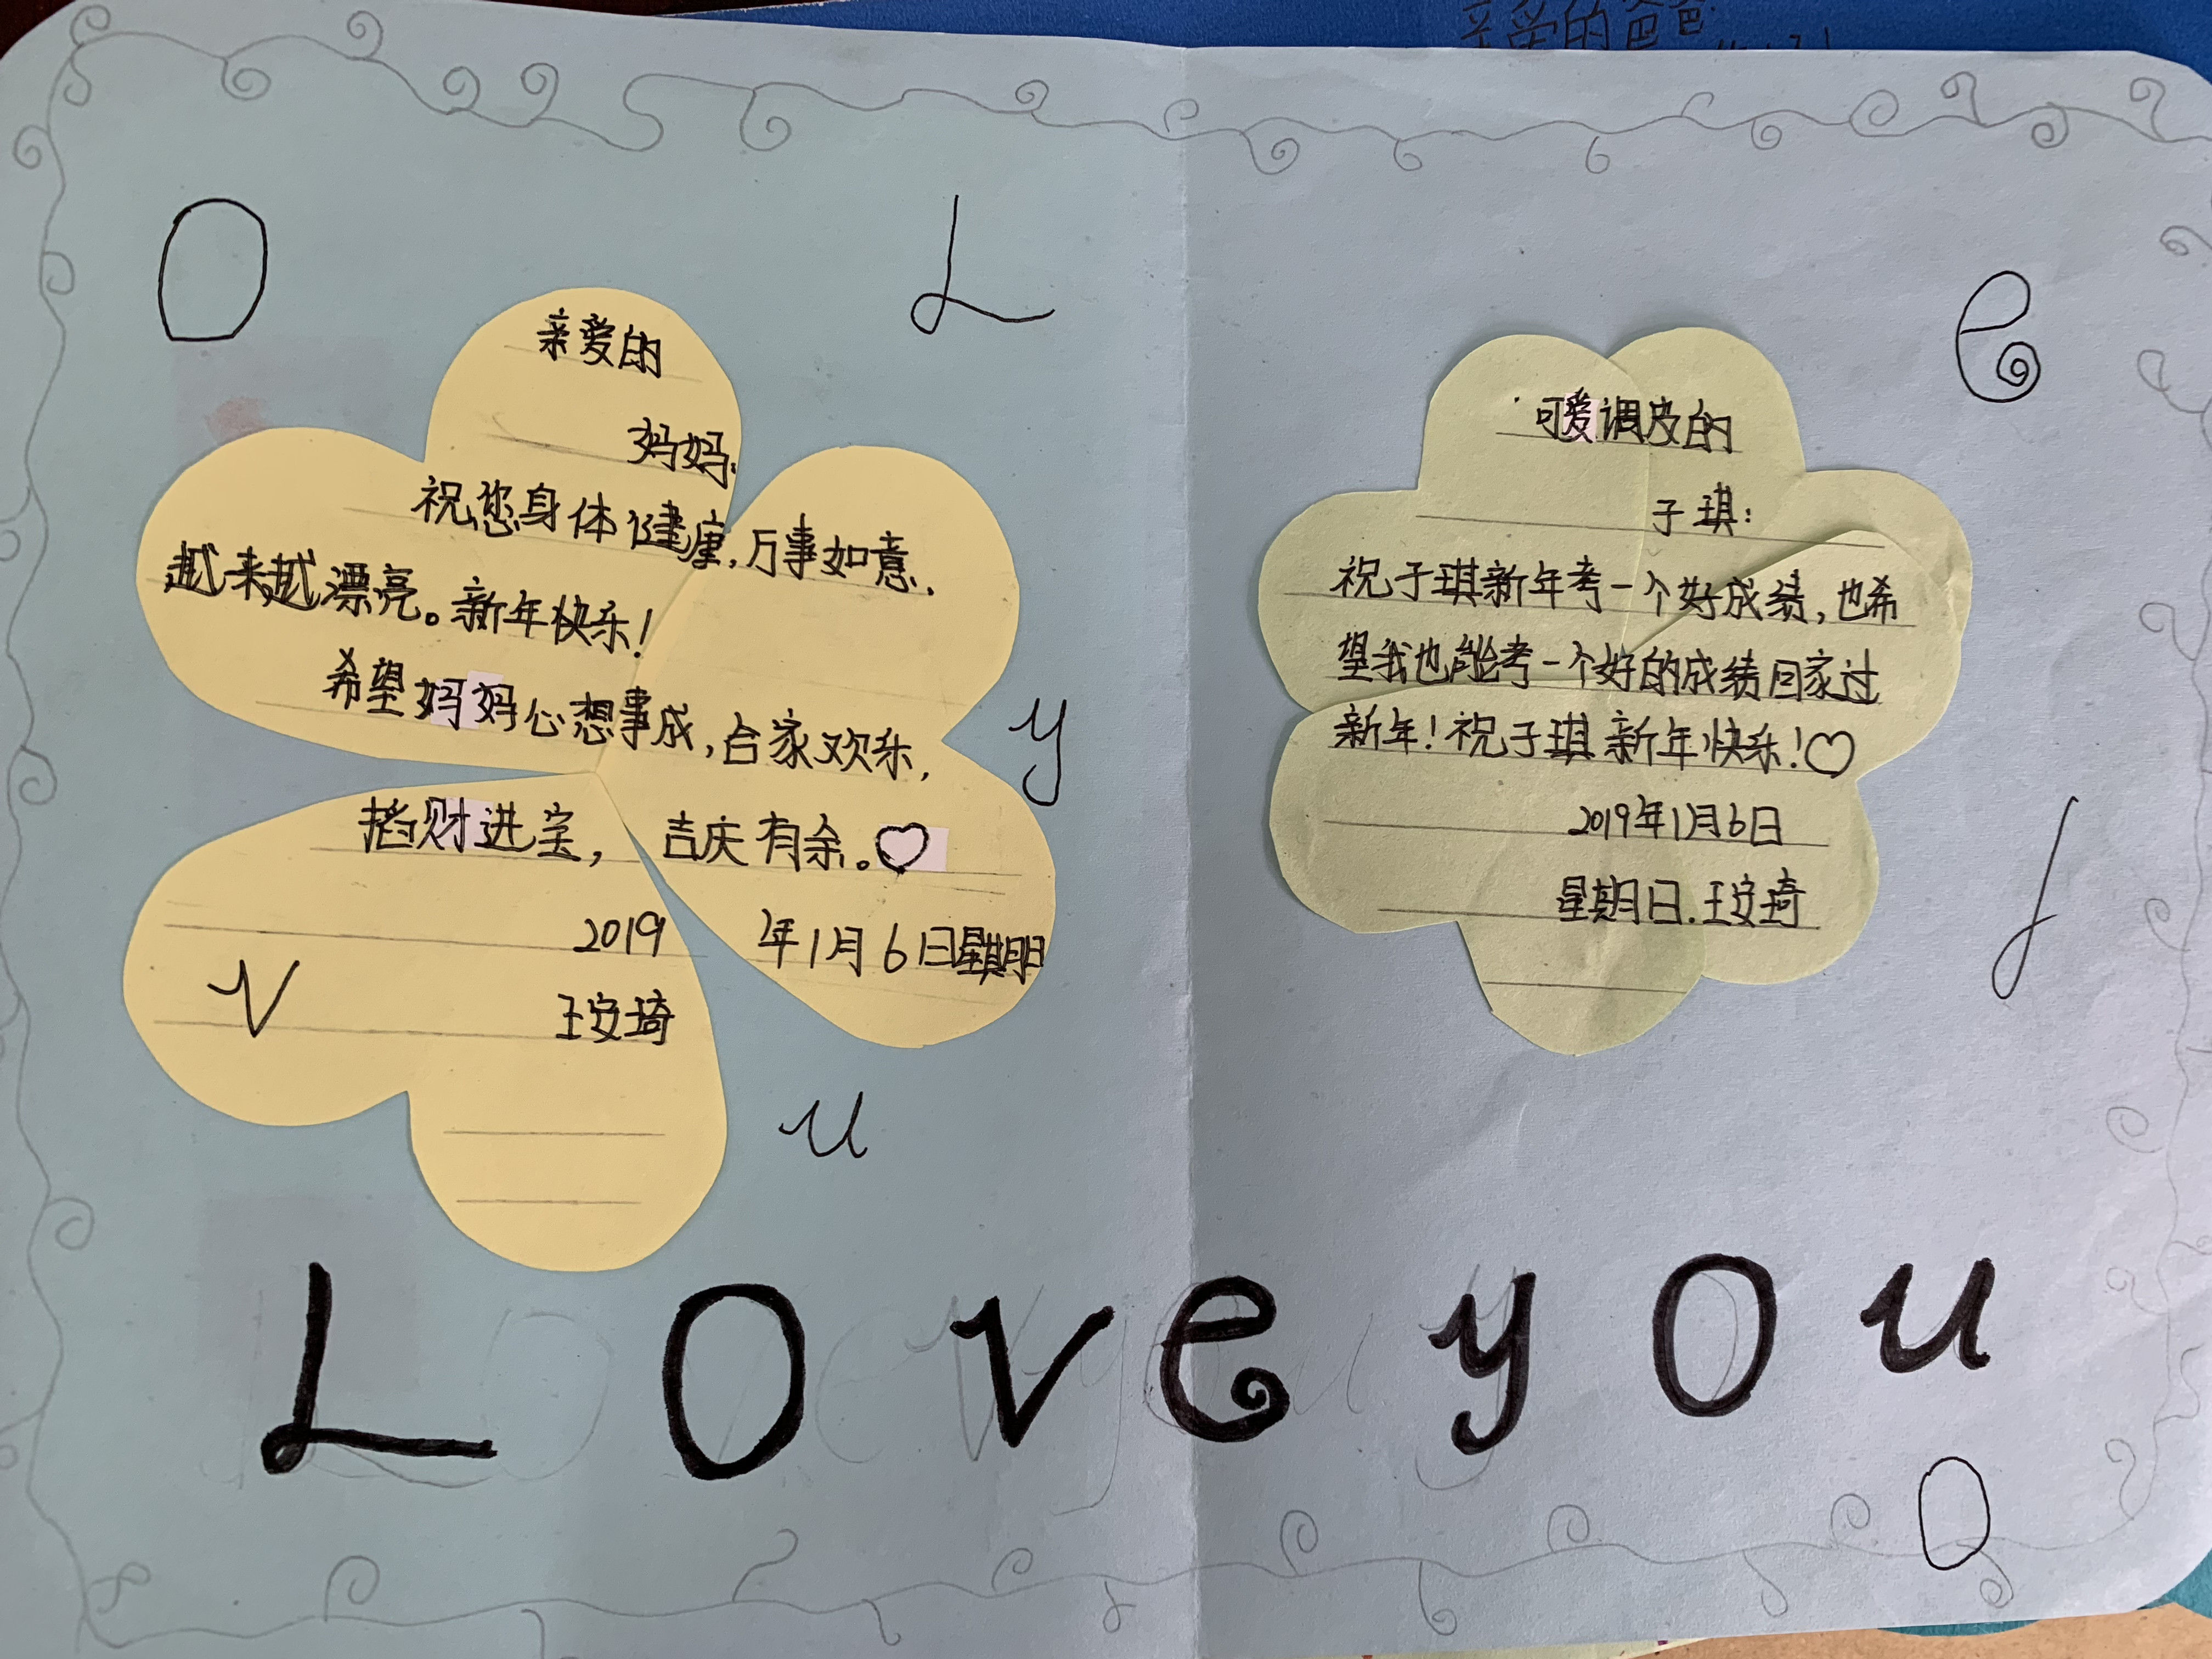 亲爱的爸爸
O
L
e
亲爱的
妈妈:
祝您身体健康,万事如意,
越来越漂亮。新年快乐!
希望妈妈心想事成,合家欢乐,
招财进宝,吉庆有余。♡
2019年1月6日星期日
王安琦
V
y
u
可爱调皮的
子琪:
祝子琪新年考一个好成绩,也希
望我也能考一个好的成绩回家过
新年!祝子琪新年快乐!♡
2019年1月6日
星期日.王安琦
Love you
O